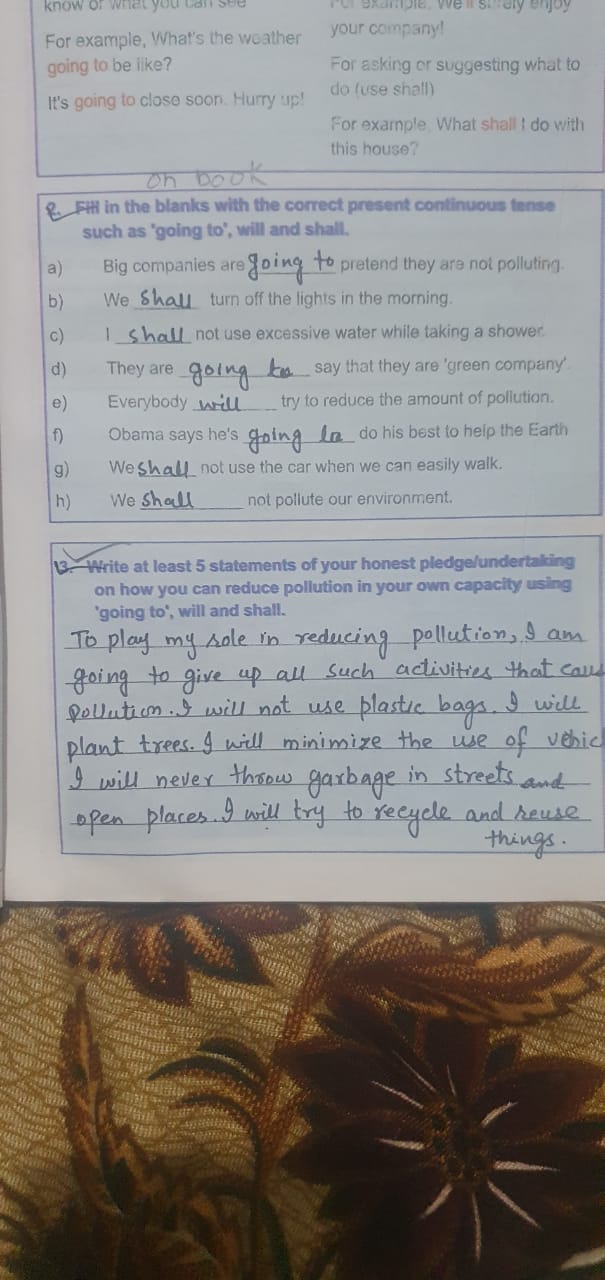 know or what you can see
For example, What's the weather
going to be like?
It's going to close soon. Hurry up!
For example, We'll surely enjoy
your company!
For asking or suggesting what to
do (use shall)
For example, What shall I do with
this house?
on book
Fill in the blanks with the correct present continuous tense
such as 'going to', will and shall.
a) Big companies are going to pretend they are not polluting.
b) We shall turn off the lights in the morning.
c) I shall not use excessive water while taking a shower.
d) They are going to say that they are 'green company'.
e) Everybody will try to reduce the amount of pollution.
f) Obama says he's going to do his best to help the Earth
g) We shall not use the car when we can easily walk.
h) We shall not pollute our environment.
13. Write at least 5 statements of your honest pledge/undertaking
on how you can reduce pollution in your own capacity using
'going to', will and shall.
To play my role in reducing pollution, I am
going to give up all such activities that
pollution. I will not use plastic bags. I will
plant trees. I will minimize the use of
I will never throw garbage in streets and
open places. I will try to recycle and reuse
things.